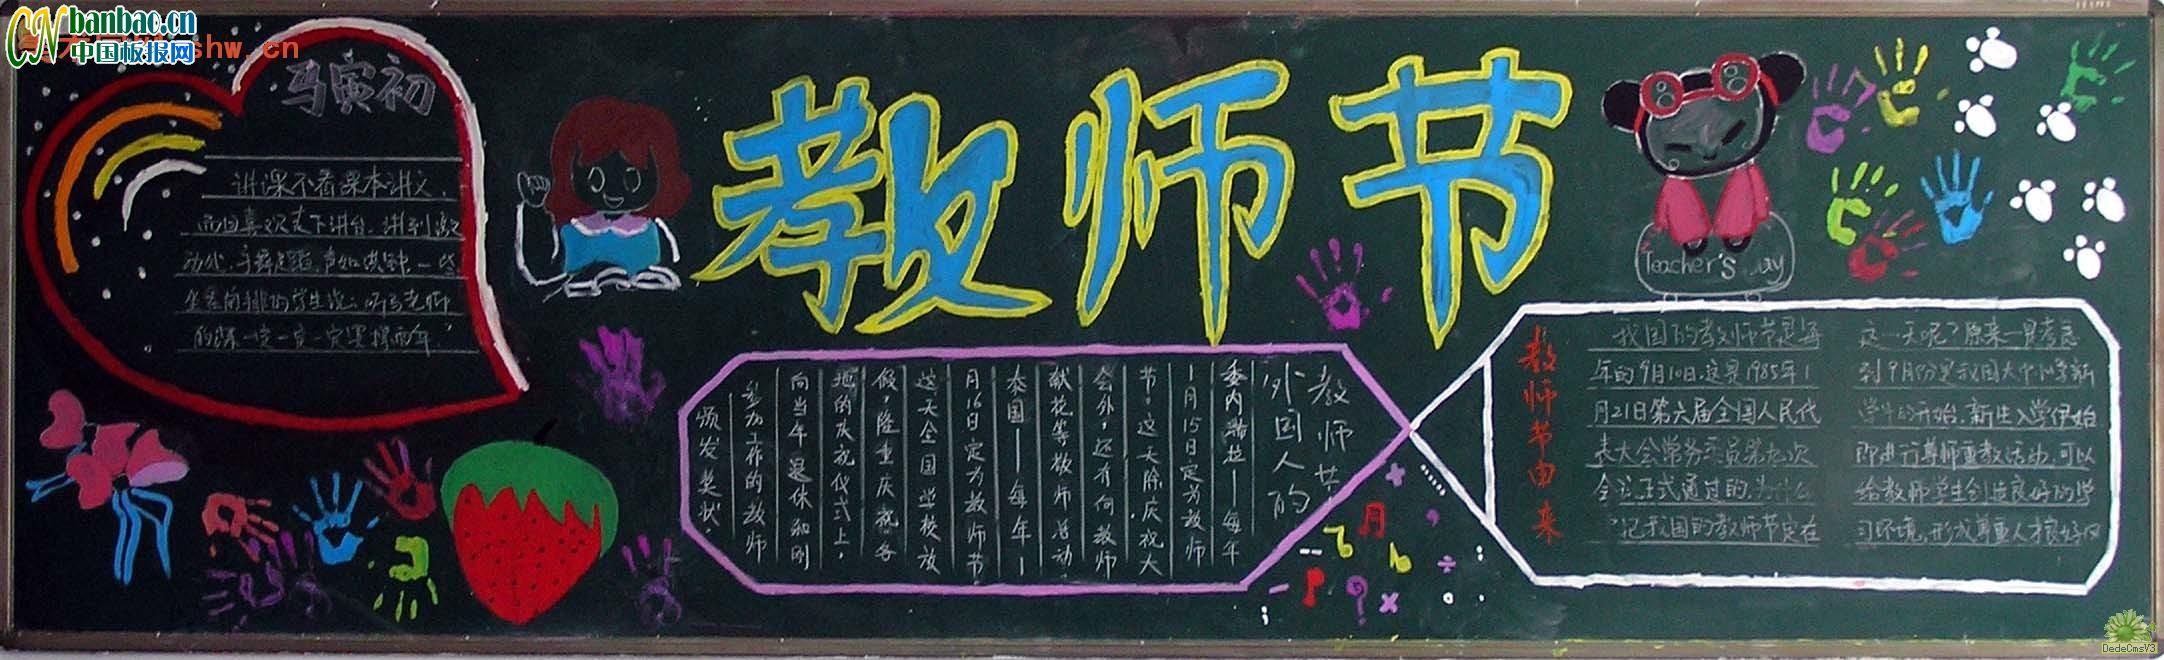 banbao.cn
中国板报网
马寅初
讲课不看课本讲义，
而且喜欢走下讲台，讲到激
动处，手舞足蹈，声如洪钟，一些
坐在前排的学生说：听马老师
的课一定一定一定要撑雨伞，
教师节
Teacher's ay
外国人的
教师节
委内瑞拉——每年
1月15日定为教师
节。这天除庆祝大
会外，还有向教师
献花等敬师活动。
泰国——每年1
月16日定为教师节，
这天全国学校放
假，隆重庆祝各
地的庆祝仪式上，
向当年退休和刚
参加工作的教师
颁发奖状。
教师节由来
我国的教师节是每
年的9月10日，这是1985年1
月21日第六届全国人民代
表大会常务委员第九次
会议正式通过的，为什么
记我国的教师节定在
这一天呢？原来一是考虑
到9月份是我国大中小学新
学年的开始，新生入学伊始
即进行尊师重教活动，可以
给教师学生创造良好的学
习环境，形成尊重人才良好
DedeCmsV3